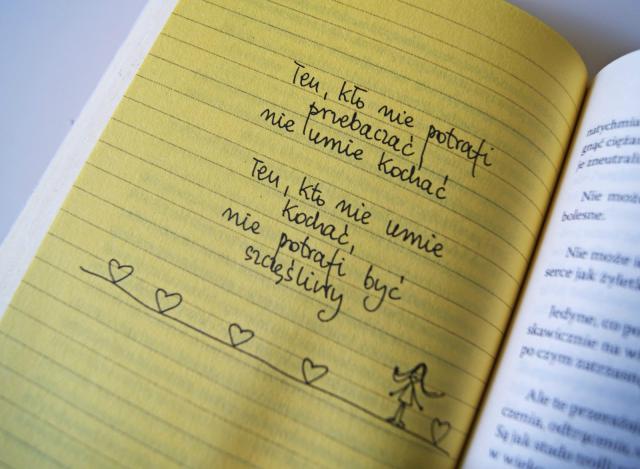 Ten, kto nie potrafi
przebaczać,
nie umie kochać
Ten, kto nie umie
kochać,
nie potrafi być
szczęśliwy
natychmia
je zneutrali
Nie może
bolesne.
Nie może i
serce jak żyletk
Jedyne, co po
skawicznie na w
po czym zatrzas
Ale te przeraża
czenia, odtrącenia,